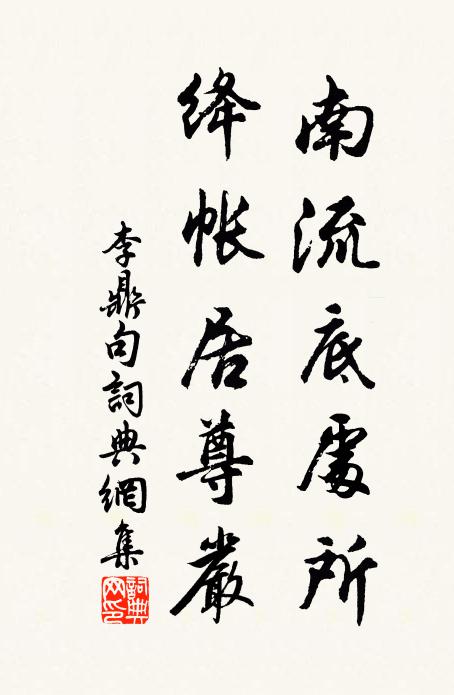 南流底處所
绛帐居尊嚴
李鼎句詞典網集
詞典網印